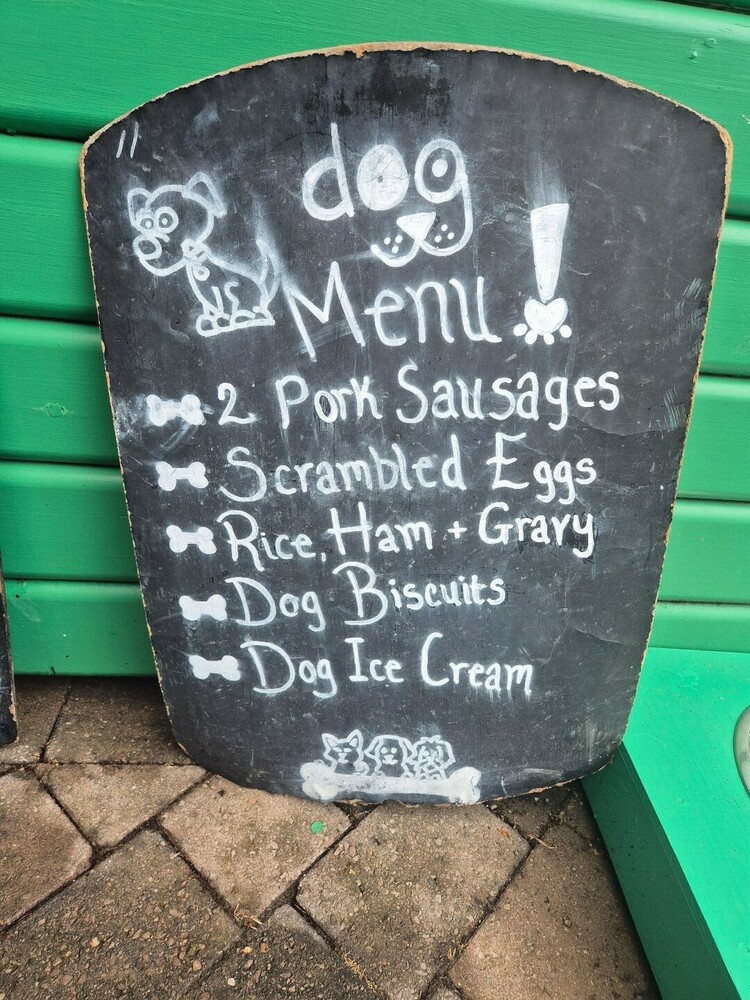 dog
Menu!
2 Pork Sausages
Scrambled Eggs
Rice, Ham + Gravy
Dog Biscuits
Dog Ice Cream